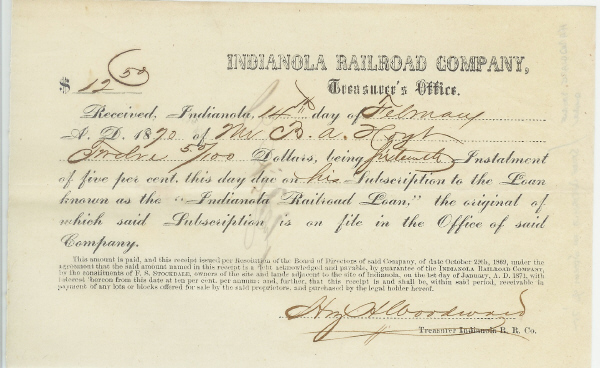 INDIANOLA RAILROAD COMPANY,
Treasurer's Office.
$ 12 50
Received, Indianola, 14th day of February
A. D. 1870 of Mr B. A. Hoyt
Twelve 50/100 Dollars, being fifteenth Instalment
of five per cent. this day due on his Subscription to the Loan
known as the "Indianola Railroad Loan," the original of
which said Subscription is on file in the Office of said
Company.
This amount is paid, and this receipt issued per Resolution of the Board of Directors of said Company, of date October 29th, 1869, under the
agreement that the said amount named in this receipt is a debt acknowledged and payable, by guarantee of the INDIANOLA RAILROAD COMPANY,
by the constituents of F. S. STOCKDALE, owners of the site and lands adjacent to the site of Indianola, on the 1st day of January, A. D. 1871, with
interest thereon from this date at ten per cent. per annum; and, further, that this receipt is and shall be, within said period, receivable in
payment of any lots or blocks offered for sale by the said proprietors, and purchased by the legal holder hereof.
H Woodward
Treasurer Indianola R. R. Co.